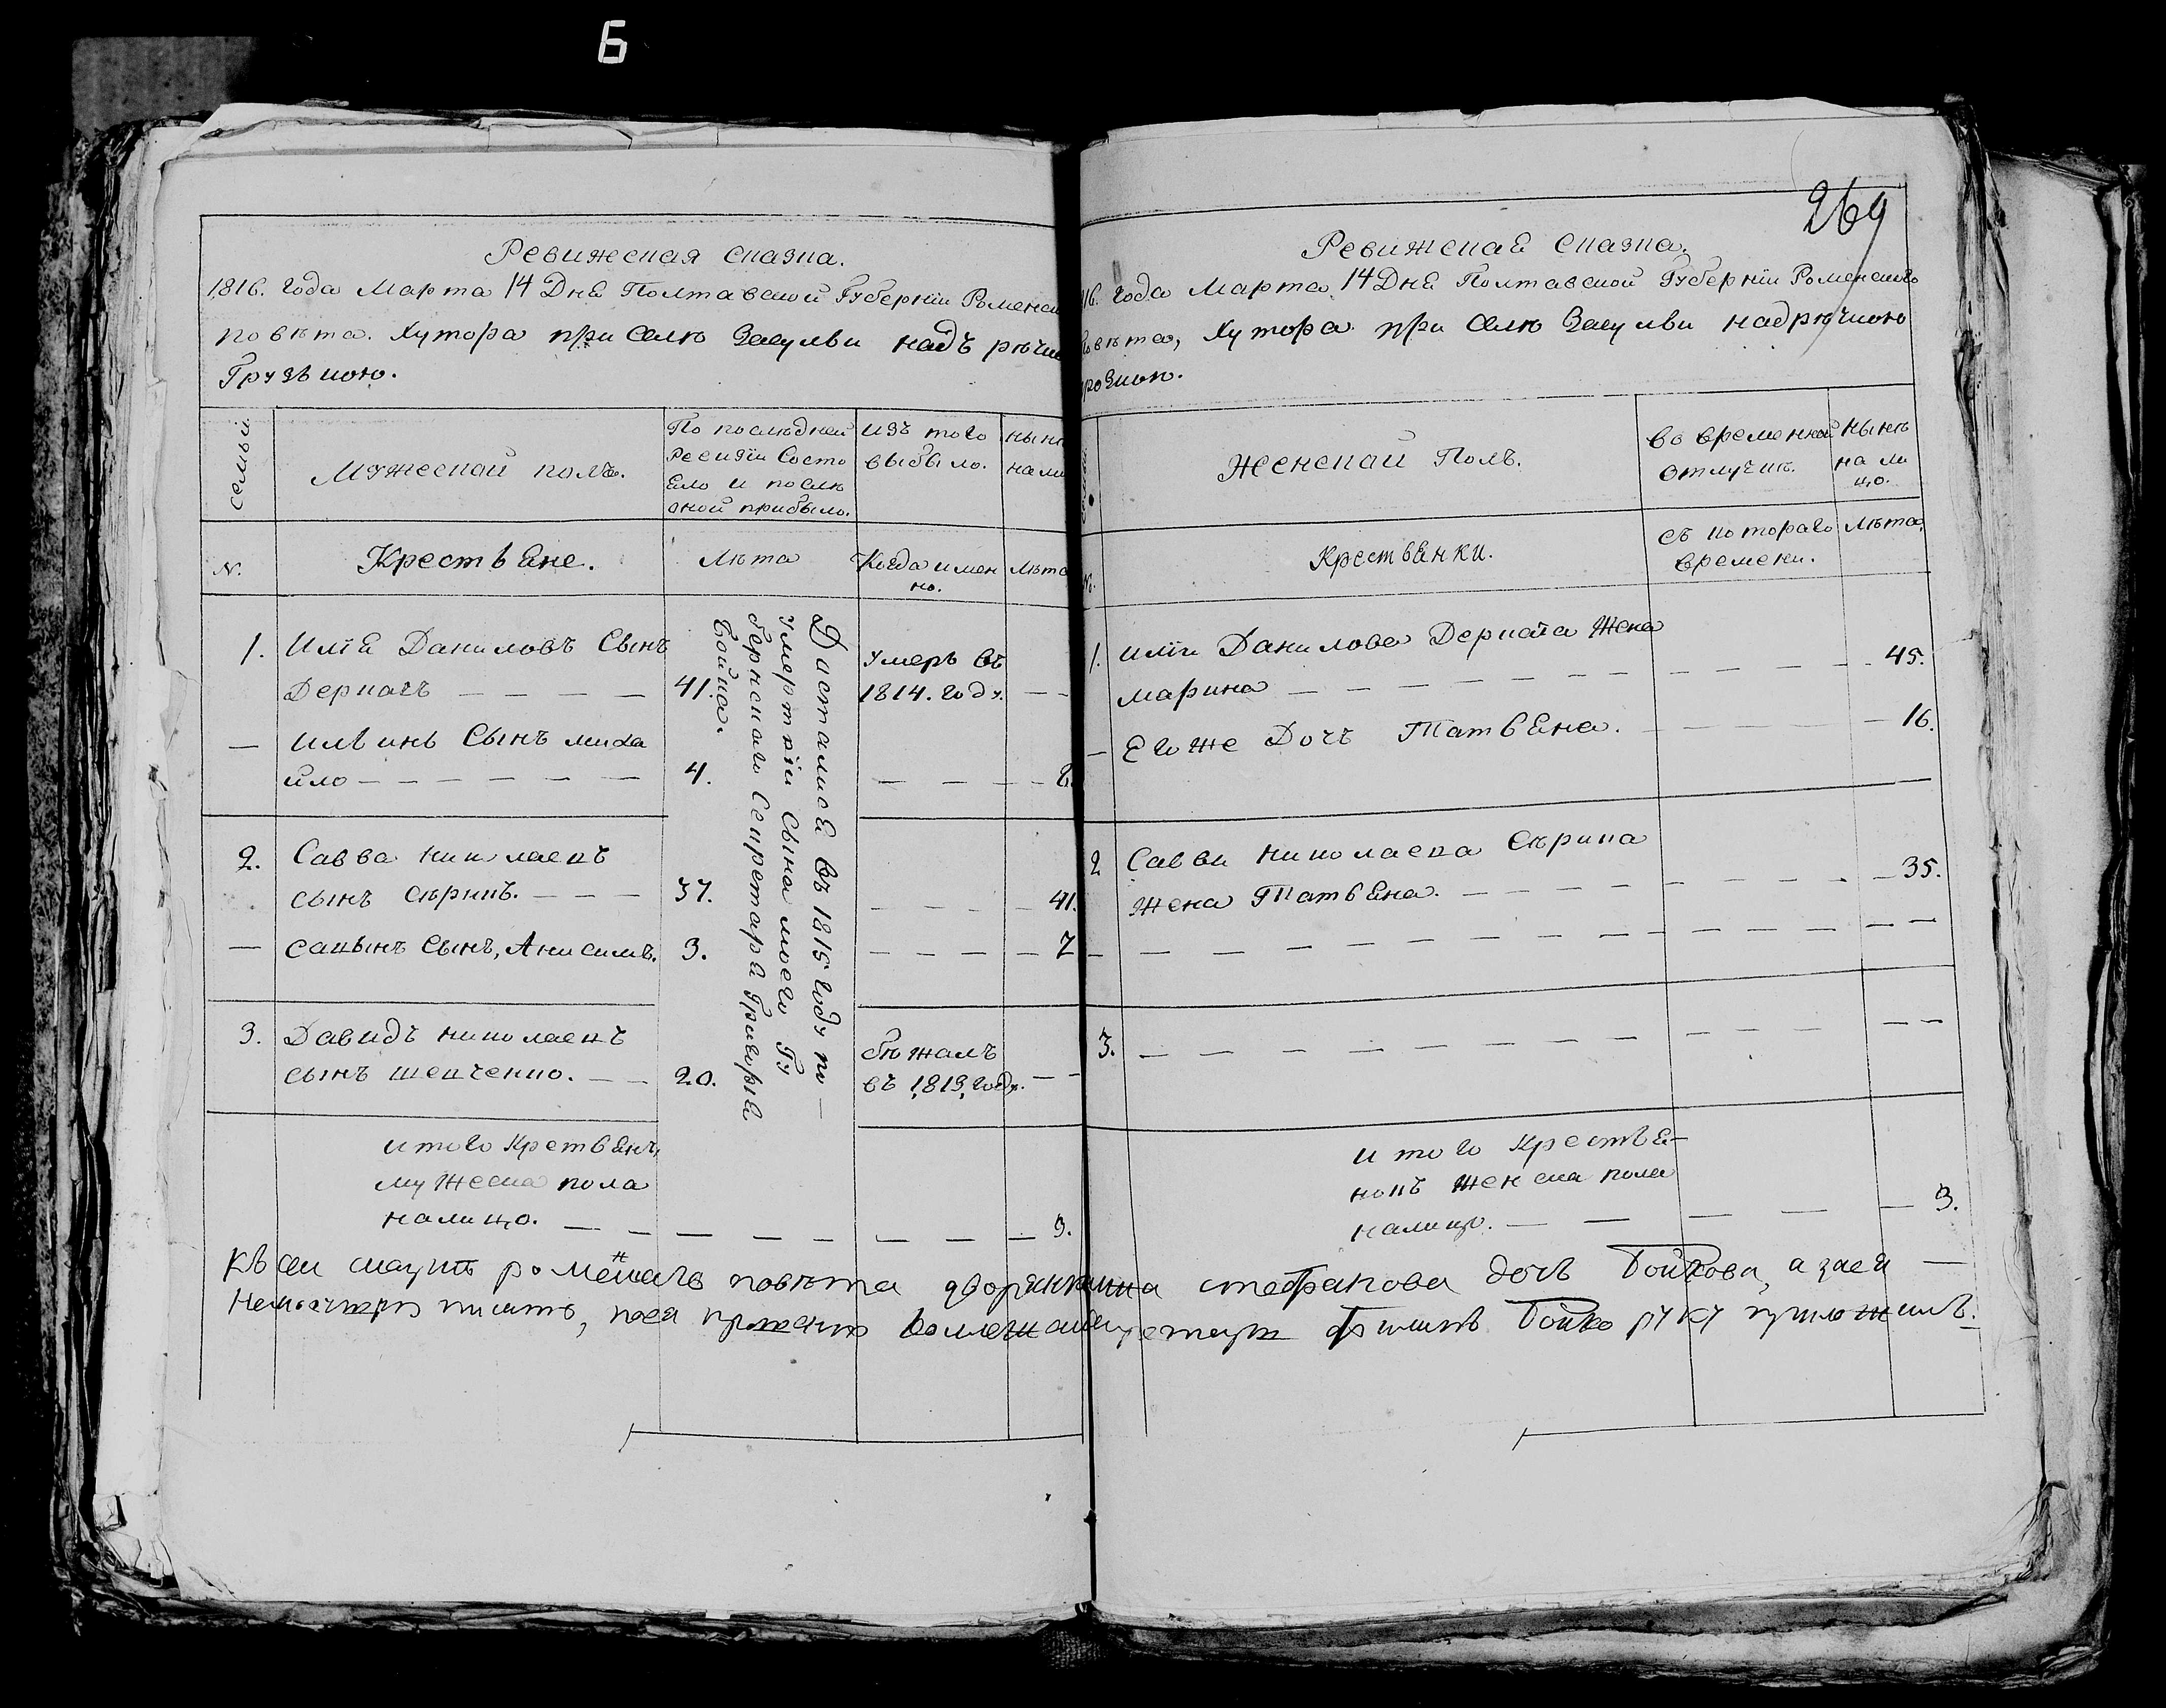 Б
Ревижская сказка.
1816. года Марта 14 Дня Полтавской Губернїи Роменск
повѣта. Хутора при Селѣ Засульи надъ рѣчк
Грузькою.
семьи
Мужеской полъ.
По последней
Ревизїи Состо
яло и послѣ
оной прибыло.
изъ того
выбыло.
нынѣ
нали
N.
Крестьяне.
Лѣта
Когда имен
но.
лѣта
1. Илїя Даниловъ Сынъ
Деркачъ — — — — 41. Умеръ въ 1814. году. — —
— Ильинъ Сынъ миха
йло — — — — — — 4. — — — 8.
2. Савва николаевъ
сынъ Сѣрикъ. — — — 37. — — — — 41.
— Савынъ Сынъ, Анисимъ. 3. — — — — 7
3. Давидъ николаевъ
сынъ шевченко. — — 20. бѣжалъ въ 1813, году. — —
Досталися въ 1815 году по —
умертвїи Сына моего Гу
бернскаго Секретаря Григорїя
Бойка.
итого Кретьянъ
мужеска пола
налицо. — — — — — — — — 3.
269
Ревижская Сказка.
16. года Марта 14 Дня Полтавской Губернїи Роменскаго
овѣта, Хутора при Селѣ Засульи надрѣчкою
розкою.
Женскай Полъ.
во временной
отлучкѣ.
нынѣ
на ли
цо.
N.
Крестьянки.
съ котораго
времени.
лѣта,
1. илїи Данилова Деркача Жена
марина — — — — — — — — — — 45.
— Егоже Дочь Татьяна. — — — — 16.
2 Савви николаева Сѣрика
Жена Татьяна. — — — — — — — — 35.
— — — — — — — — — — — — — —
3. — — — — — — — — — — — — —
итого Крестья-
нокъ женска пола
налицо. — — — — — 3.
Къ сей скаски роменскаго повѣта дворянк стефанова дочь Бойкова, а заея —
писать, поея прошенїю Бойко руку приложилъ.